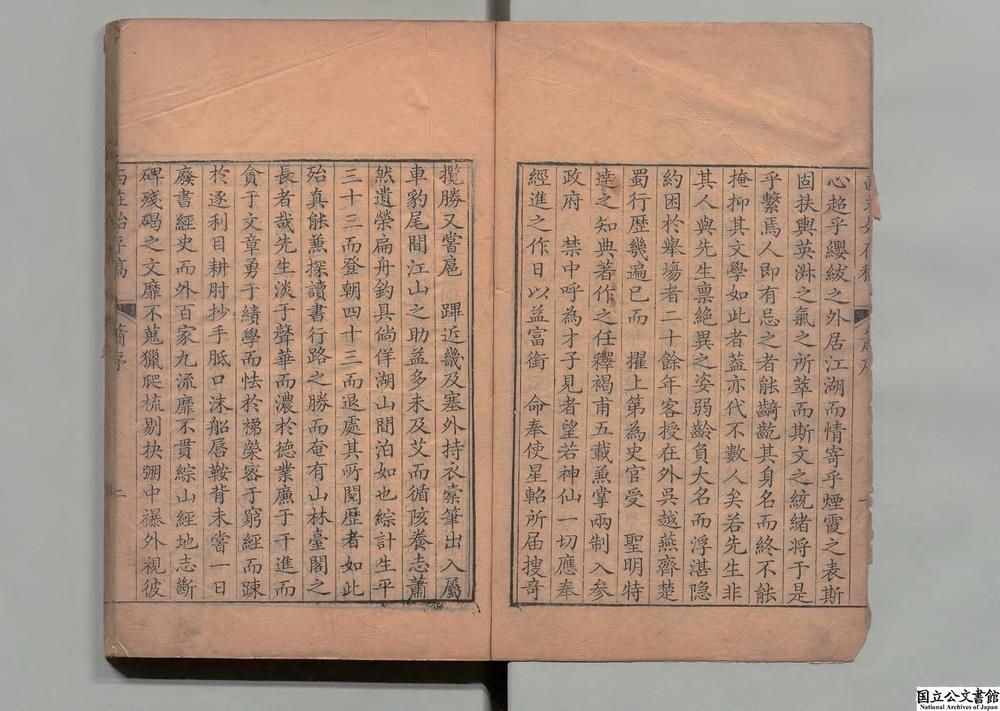 心超乎纓紱之外居江湖而情寄乎煙霞之表斯
固扶輿英淑之氣之所萃而斯文之統緒将于是
乎繫焉人即有忌之者能齮齕其身名而終不能
掩抑其文學如此者葢亦代不數人矣若先生非
其人與先生禀絶異之姿弱齡負大名而浮湛隐
約困於舉塲者二十餘年客授在外吳越燕齊楚
蜀行歴幾遍已而 擢上第為史官受 聖明特
達之知典著作之任釋褐甫五載兼掌兩制入參
政府 禁中呼為才子見者望若神仙一切應奉
經進之作日以益富銜 命奉使星軺所届搜竒
攬勝又嘗扈 蹕近畿及塞外持衣橐筆出入屬
車豹尾間江山之助益多未及艾而循陔養志蕭
然遺榮扁舟釣具倘佯湖山間泊如也綜計生平
三十三而登朝四十三而退處其所閱歴者如此
殆真能兼探讀書行路之勝而奄有山林臺閣之
長者哉先生淡于聲華而濃於德業廉于干進而
貪于文章勇于績學而怯於梯榮密于窮經而踈
於逐利目耕肘抄手胝口沫船唇鞍背未嘗一日
廢書經史而外百家九流靡不貫綜山經地志斷
碑殘碣之文靡不蒐獵爬梳剔抉弸中襮外視彼
蕭序
二
国立公文書館
National Archives of Japan